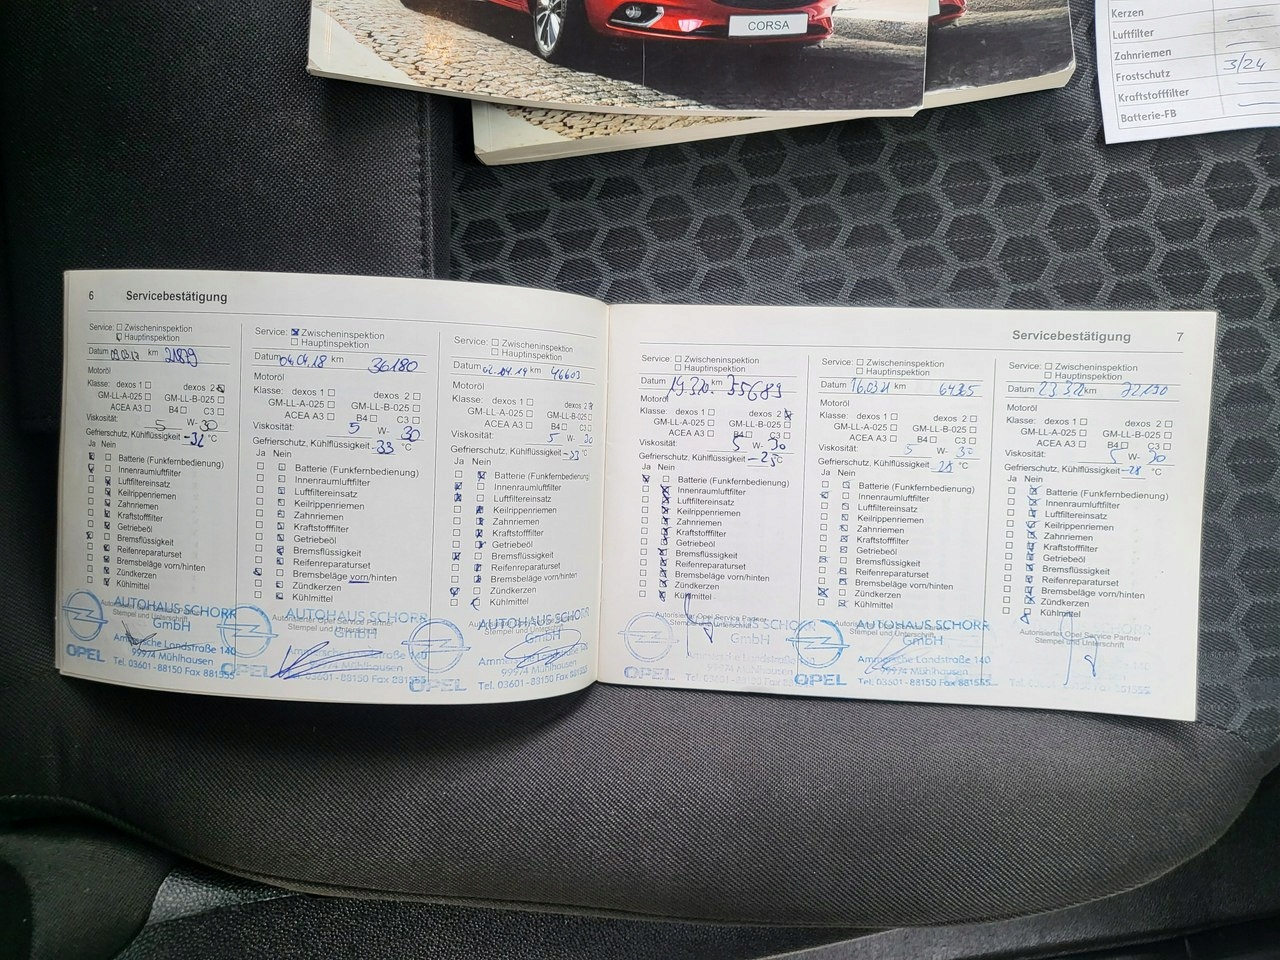 CORSA
Kerzen
Luftfilter
Zahnriemen
Frostschutz 3/24
Kraftstofffilter
Batterie-FB
6 Servicebestätigung
Service: Zwischeninspektion
Hauptinspektion
Datum 09.03.17 km 21879
Motoröl
Klasse: dexos 1 dexos 2
GM-LL-A-025 GM-LL-B-025
ACEA A3 B4 C3
Viskosität: 5 W- 30
Gefrierschutz, Kühlflüssigkeit -32 °C
Ja Nein
Batterie (Funkfernbedienung)
Innenraumluftfilter
Luftfiltereinsatz
Keilrippenriemen
Zahnriemen
Kraftstofffilter
Getriebeöl
Bremsflüssigkeit
Reifenreparaturset
Bremsbeläge vorn/hinten
Zündkerzen
Kühlmittel
Autorisierter Opel Service Partner
Stempel und Unterschrift
AUTOHAUS SCHORR
GmbH
Ammersche Landstraße 140
99974 Mühlhausen
OPEL Tel. 03601-88150 Fax 881555
Service: Zwischeninspektion
Hauptinspektion
Datum 04.04.18 km 36180
Motoröl
Klasse: dexos 1 dexos 2
GM-LL-A-025 GM-LL-B-025
ACEA A3 B4 C3
Viskosität: 5 W- 30
Gefrierschutz, Kühlflüssigkeit -33 °C
Ja Nein
Batterie (Funkfernbedienung)
Innenraumluftfilter
Luftfiltereinsatz
Keilrippenriemen
Zahnriemen
Kraftstofffilter
Getriebeöl
Bremsflüssigkeit
Reifenreparaturset
Bremsbeläge vorn/hinten
Zündkerzen
Kühlmittel
Autorisierter Opel Service Partner
Stempel und Unterschrift
AUTOHAUS SCHORR
GmbH
Ammersche Landstraße 140
99974 Mühlhausen
OPEL Tel. 03601-88150 Fax 881555
Service: Zwischeninspektion
Hauptinspektion
Datum 02.04.19 km 46603
Motoröl
Klasse: dexos 1 dexos 2
GM-LL-A-025 GM-LL-B-025
ACEA A3 B4 C3
Viskosität: 5 W- 30
Gefrierschutz, Kühlflüssigkeit -33 °C
Ja Nein
Batterie (Funkfernbedienung)
Innenraumluftfilter
Luftfiltereinsatz
Keilrippenriemen
Zahnriemen
Kraftstofffilter
Getriebeöl
Bremsflüssigkeit
Reifenreparaturset
Bremsbeläge vorn/hinten
Zündkerzen
Kühlmittel
AUTOHAUS SCHORR
GmbH
Ammersche Landstraße 140
99974 Mühlhausen
OPEL Tel. 03601-88150 Fax 881555
Servicebestätigung 7
Service: Zwischeninspektion
Hauptinspektion
Datum 19.3.20 km 55689
Motoröl
Klasse: dexos 1 dexos 2
GM-LL-A-025 GM-LL-B-025
ACEA A3 B4 C3
Viskosität: 5 W- 30
Gefrierschutz, Kühlflüssigkeit -25 °C
Ja Nein
Batterie (Funkfernbedienung)
Innenraumluftfilter
Luftfiltereinsatz
Keilrippenriemen
Zahnriemen
Kraftstofffilter
Getriebeöl
Bremsflüssigkeit
Reifenreparaturset
Bremsbeläge vorn/hinten
Zündkerzen
Kühlmittel
Autorisierter Opel Service Partner
Stempel und Unterschrift
GmbH
OPEL Tel. 03601-88150 Fax
Service: Zwischeninspektion
Hauptinspektion
Datum 16.03.21 km
Motoröl
Klasse: dexos 1 dexos 2
GM-LL-A-025 GM-LL-B-025
ACEA A3 B4 C3
Viskosität: 5 W- 30
Gefrierschutz, Kühlflüssigkeit -28 °C
Ja Nein
Batterie (Funkfernbedienung)
Innenraumluftfilter
Luftfiltereinsatz
Keilrippenriemen
Zahnriemen
Kraftstofffilter
Getriebeöl
Bremsflüssigkeit
Reifenreparaturset
Bremsbeläge vorn/hinten
Zündkerzen
Kühlmittel
Autorisierter Opel Service Partner
Stempel und Unterschrift
AUTOHAUS SCHORR
GmbH
Ammersche Landstraße 140
99974 Mühlhausen
OPEL Tel. 03601-88150 Fax 881555
Service: Zwischeninspektion
Hauptinspektion
Datum 23.3.22 km 72190
Motoröl
Klasse: dexos 1 dexos 2
GM-LL-A-025 GM-LL-B-025
ACEA A3 B4 C3
Viskosität: 5 W- 30
Gefrierschutz, Kühlflüssigkeit -28 °C
Ja Nein
Batterie (Funkfernbedienung)
Innenraumluftfilter
Luftfiltereinsatz
Keilrippenriemen
Zahnriemen
Kraftstofffilter
Getriebeöl
Bremsflüssigkeit
Reifenreparaturset
Bremsbeläge vorn/hinten
Zündkerzen
Kühlmittel
Autorisierter Opel Service Partner
Stempel und Unterschrift